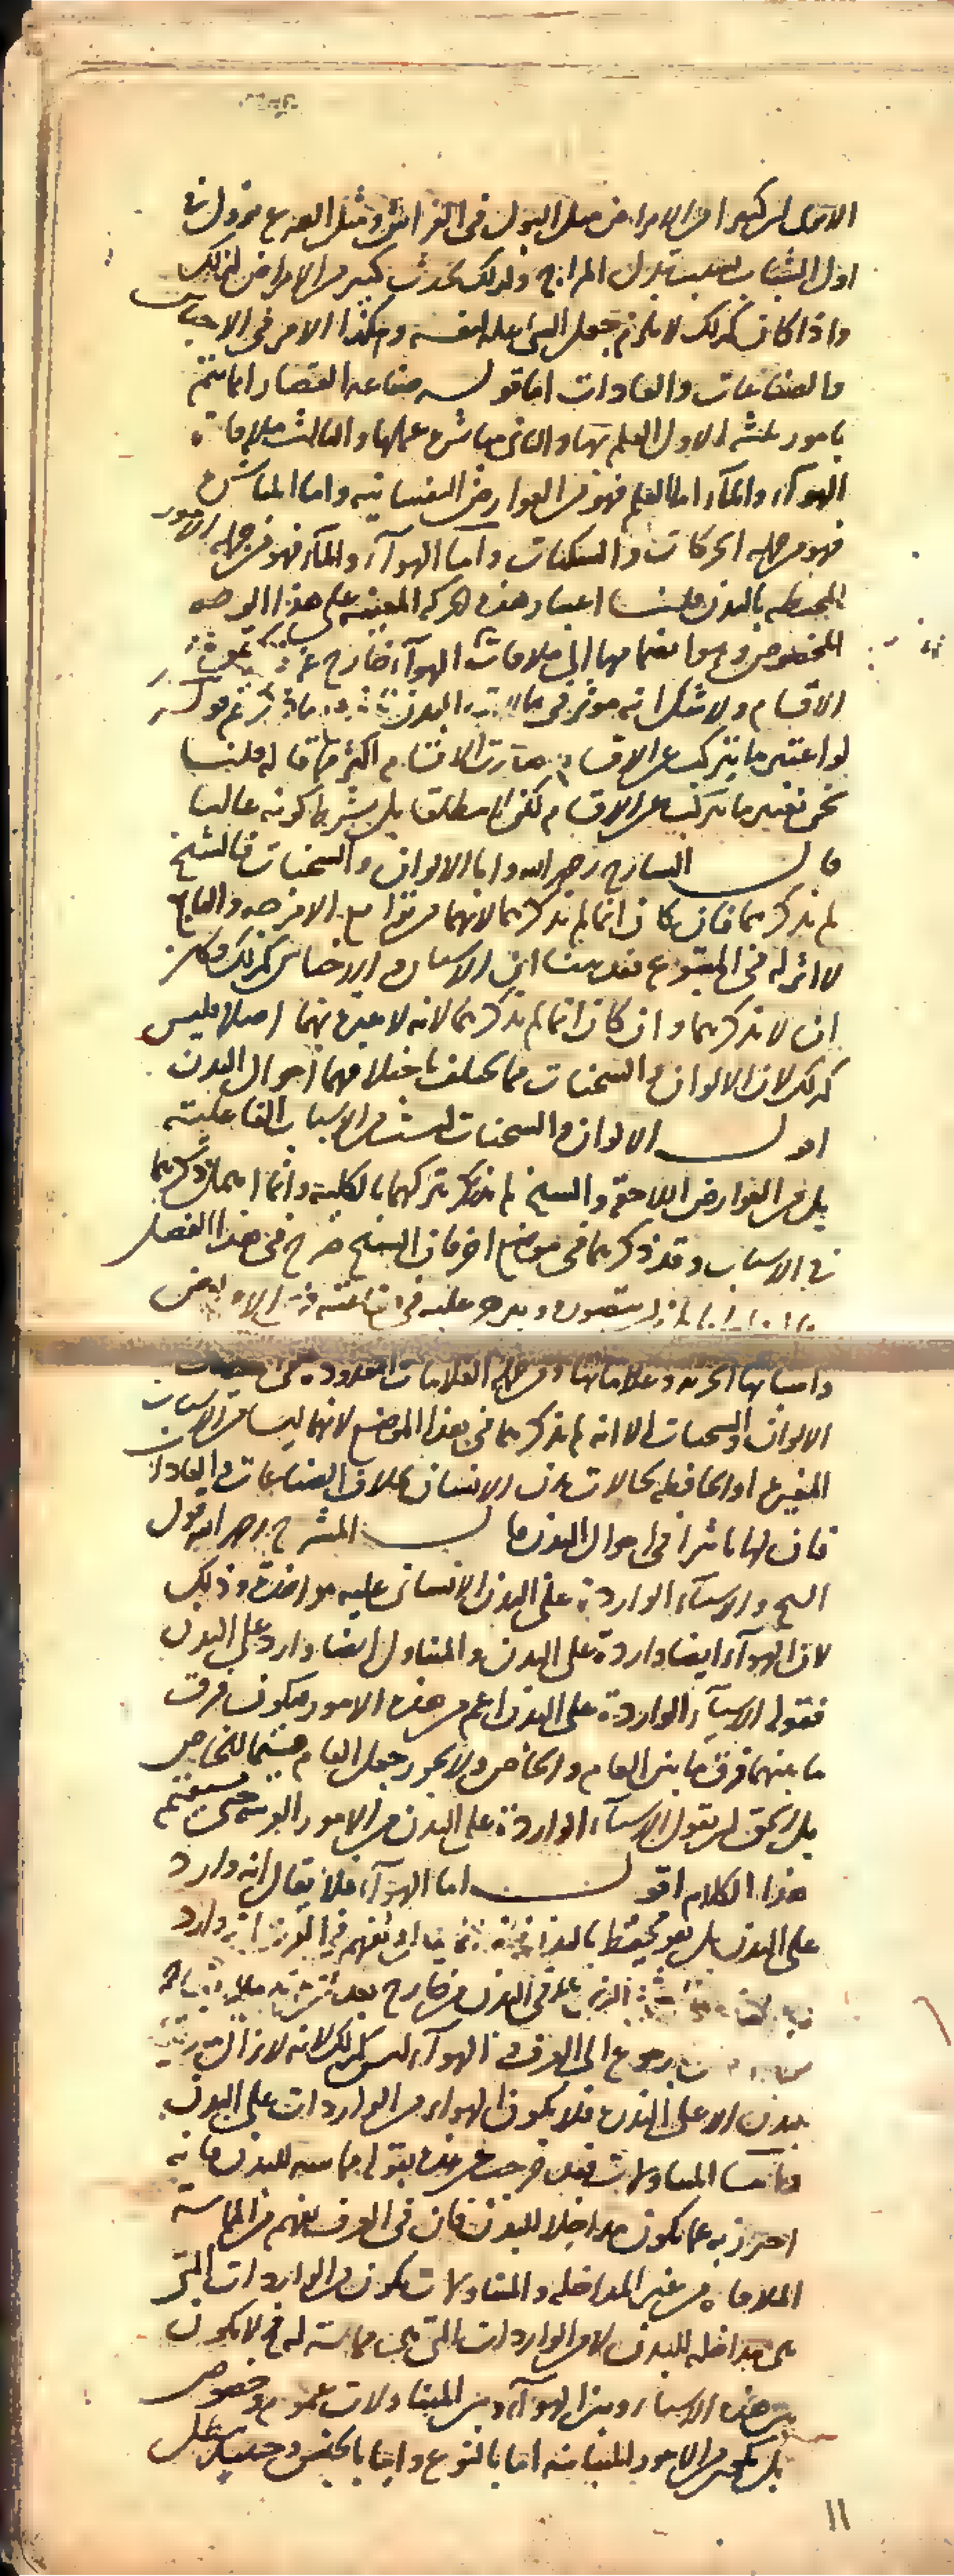 الامر كثيرا من الامراض مثل البول في الفراش ومثل الصرع يزول في
اول الشباب بسبب تبدل المزاج وكذلك يحدث كثير من الامراض لذلك
واذا كان كذلك لا يلزم جعل الشي علة لنفسه وهكذا الامر في الاجناس
والصناعات والعادات اما قوله صناعة القصار انما يتم
بامور ثلثة الاول العلم بها والثاني مباشرة عملها والثالث ملاقاة
الهوآء والمآء اما العلم فهو من العوارض النفسانية واما المباشرة
فهو من جملة الحركات والسكنات واما الهوآء والمآء فهو من جملة الامور
المحيطة بالبدن قلنا اعتبار هذه الحركة المعينة على هذا الوجه
المخصوص وهو انضمامها الى ملاقات الهوآء خارج عن
الاقسام ولا شك انه موثر في حالات البدن ثم قوله
لو اعتبر ما يتركب من الاقسام صارت الاقسام اكثر مما قاله قلنا
نحن نعتبر ما يتركب من الاقسام لكن لا مطلقا بل بشرط كونه غالبا
قال الشارح رحمه الله واما الالوان والسحنات فالشيخ
لم يذكرهما فان كان انما لم يذكرهما لانهما من توابع الامزجه والتابع
لا اثر له في المتبوع فقد بينا ان الاسنان والاجناس كذلك وكان
ان لا يذكرهما وان كان انما لم يذكرهما لانه لا عبرة بهما اصلا فليس
كذلك لان الالوان والسحنات مما يختلف باختلافهما احوال البدن
اقول الالوان والسحنات ليست من الاسباب الفاعلية
بل من العوارض اللاحقة والشيخ لم يذكر تركهما بالكلية وانما اهمل ذكرهما
في الاسباب وقد ذكرهما في موضع اخر فان الشيخ صرح في هذا الفصل
يتصوره ويبرهن عليه في صناعته الامراض
واسبابها الجزئيه وعلاماتها ومن جملة العلامات المعدودة
الالوان والسحنات الا انه لم يذكرهما في هذا الموضع لانهما ليسا من الاسباب
المغيرة او الحافظة لحالات بدن الانسان بخلاف الصناعات والعادات
فان لها تاثيرا في احوال البدن قال المشرح رحمه الله قول
الشيخ والاشيآء الواردة على البدن الانساني عليه مواخذة وذلك
لان الهوآء ايضا واردة على البدن والمتناول ايضا وارد على البدن
فنقول الاشيآء الواردة على البدن اعم من هذه الامور فيكون فرق
ما بينهما فرق ما بين العام والخاص ولا يجوز جعل العام قسيما للخاص
بل الحق ان يقول الاشيآء الواردة على البدن من الامور الغريبة حتى يستقيم
هذا الكلام اقول اما الهوآء فلا يقال انه وارد
على البدن بل هو محيط بالبدن يفهم في العرف انه وارد
البدن من خارج بعد
رجوع الى العرف والهوآء ليس كذلك لانه لا يزال
بدن الا على الندرة فلا يكون الهواء من الواردات على البدن
واما المتناولات فقد خرجت عن هذه بقوله مماسة للبدن فانه
احترز به عما يكون مداخلا للبدن فان في العرف يفهم من المماسة
الملاقاة من غير المداخلة والمتناولات تكون من الواردات التي
هي مداخلة للبدن لا من الواردات التي هي مماسة له فلا يكون
بين هذه الاشياء وبين الهوآء وبين المتناولات عموم وخصوص
بل يكون من الامور المتباينة اما بالنوع واما بالجنس وحينئذ
١١